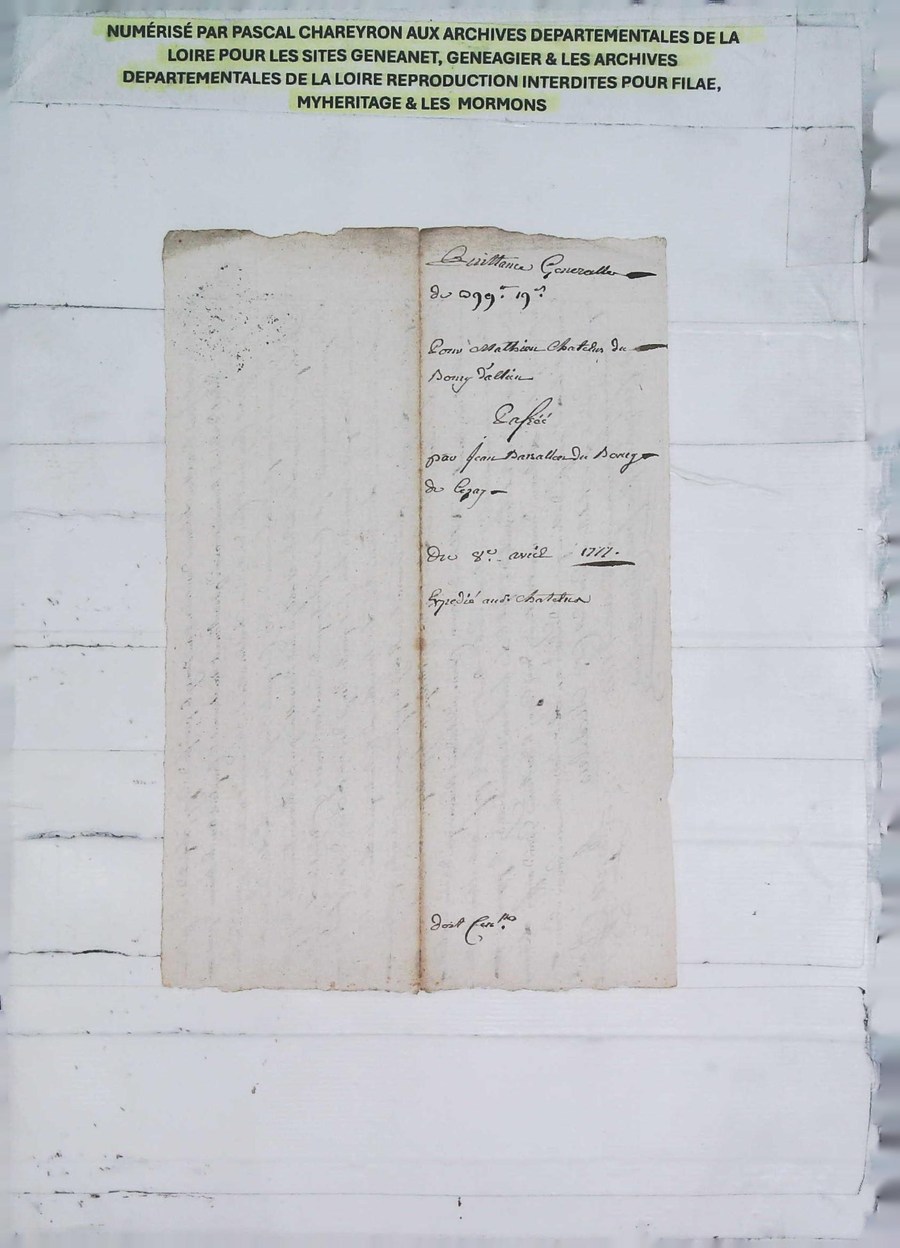 NUMÉRISÉ PAR PASCAL CHAREYRON AUX ARCHIVES DEPARTEMENTALES DE LA
LOIRE POUR LES SITES GENEANET, GENEAGIER & LES ARCHIVES
DEPARTEMENTALES DE LA LOIRE REPRODUCTION INTERDITES POUR FILAE,
MYHERITAGE & LES MORMONS
Quittance Generalle
de
Pour Mathieu Chatelus du
Bourg
par Jean Barallon du Bourg
de Cezay
Du 8e. avril 1777.
Expedié audt Chatelus
doit